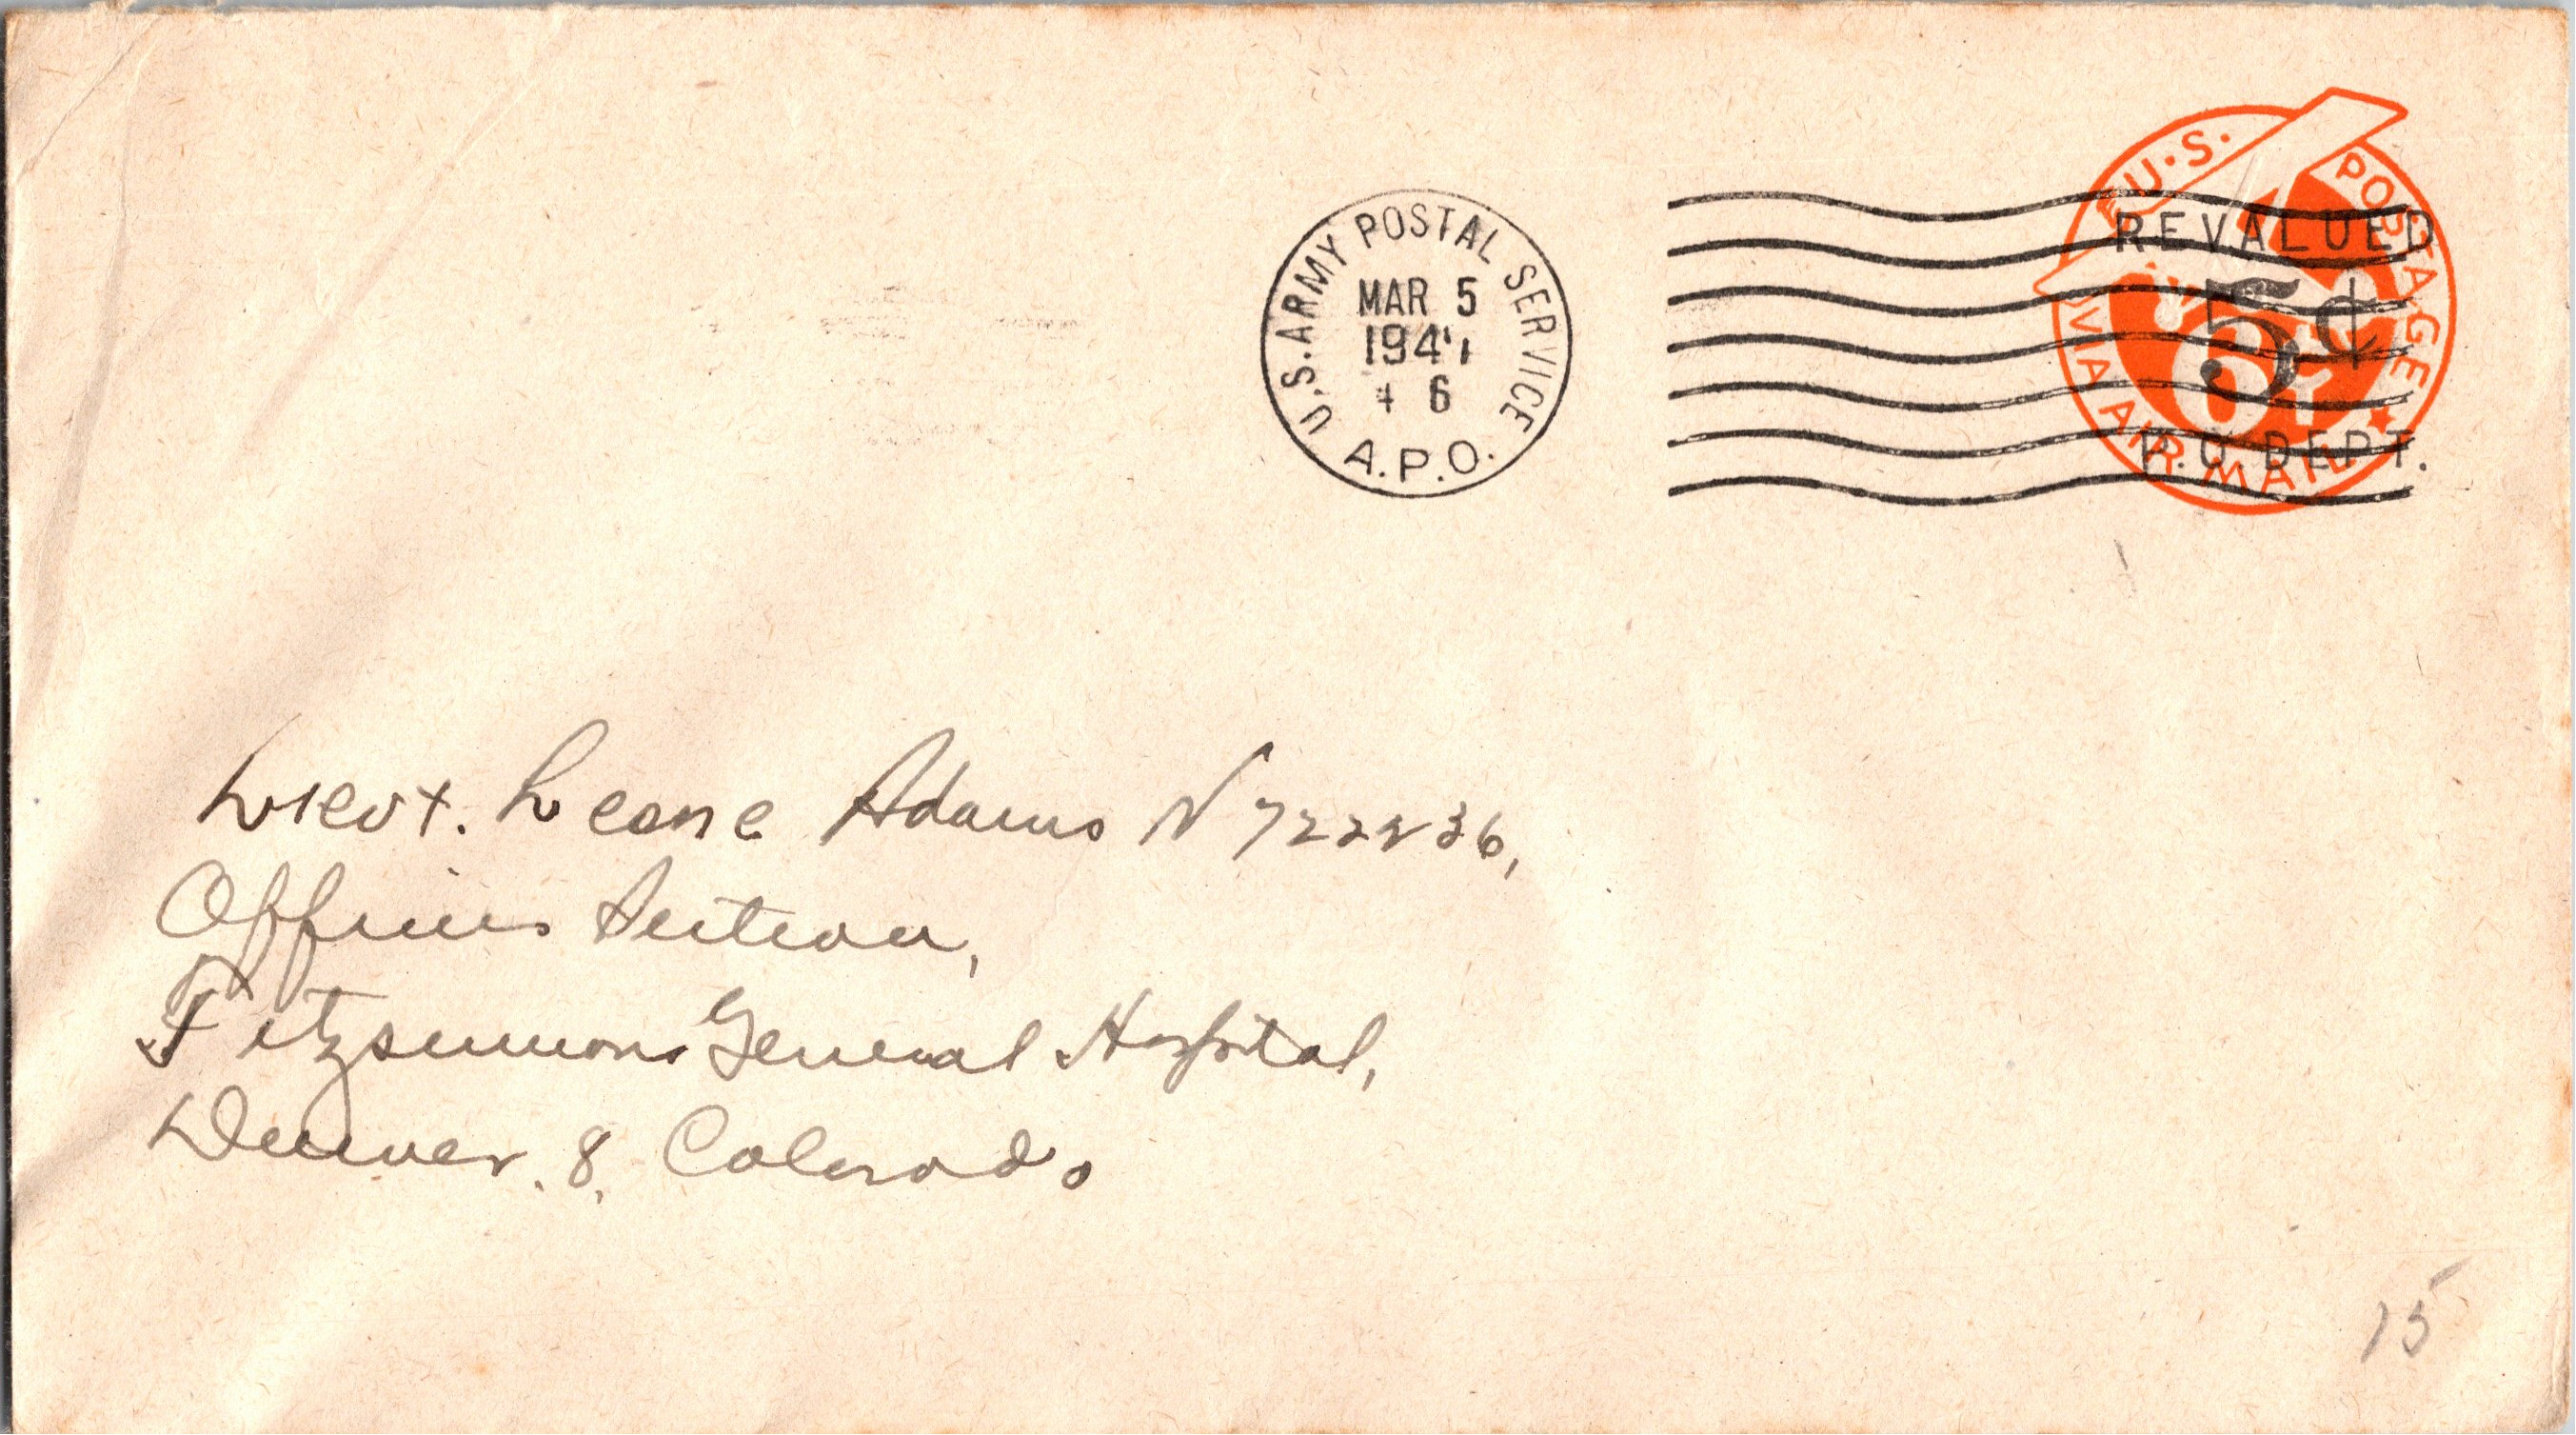 U.S. ARMY POSTAL SERVICE
MAR 5
194
6
A.P.O.
U.S. POSTAGE
VIA AIR MAIL
6¢
REVALUED
5¢
P.O. DEPT.
Lieut. Leane Adams N722236,
Officers Section,
Fitzsimmons General Hospital,
Denver. 8, Colorado
15